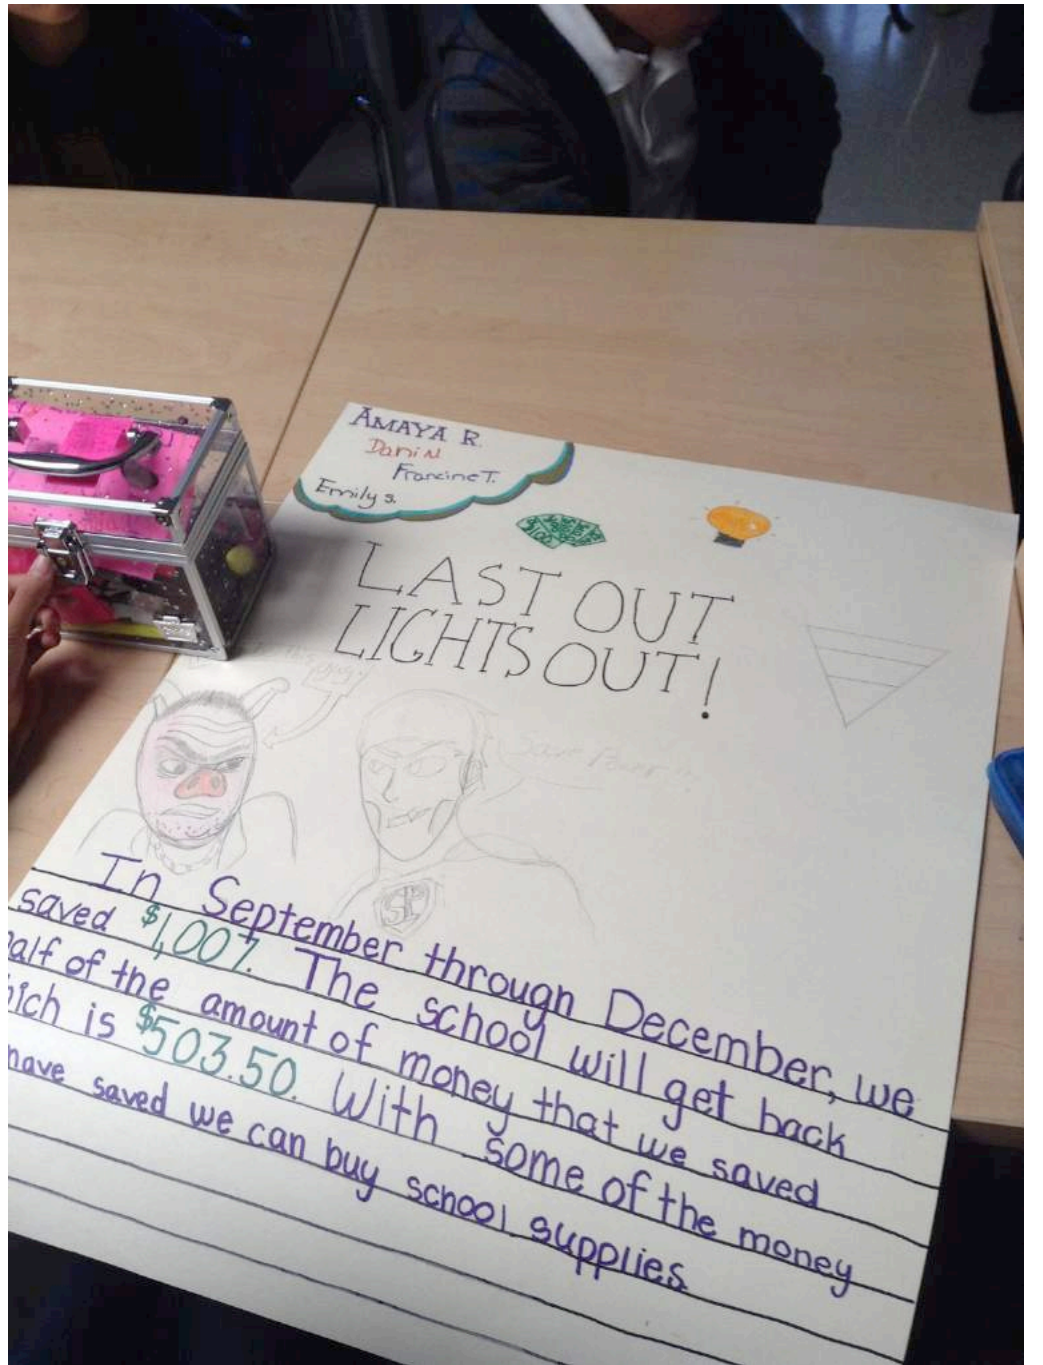 AMAYA R.
Dani N
Francine T.
Emily S.
$100
LAST OUT
LIGHTS OUT!
Save Power!!!
SP
In September through December, we
saved $1,007. The school will get back
alf of the amount of money that we saved
ich is $503.50. With some of the money
have saved we can buy school supplies.